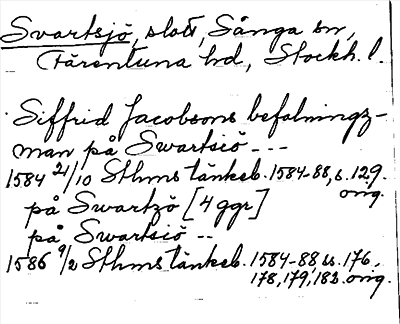 Svartsjö, slott, Sånga sn,
Färentuna hd, Stockh. l.
Siffrid Jacobsons befalningz-
man på Swartsiö ---
1584 21/10 Sthms tänkeb. 1584-88, s. 129.
orig.
på Swartzö [4 ggr.]
på Swartsiö --
1586 9/2 Sthms tänkeb. 1584-88, ss. 176,
178, 179, 183. orig.